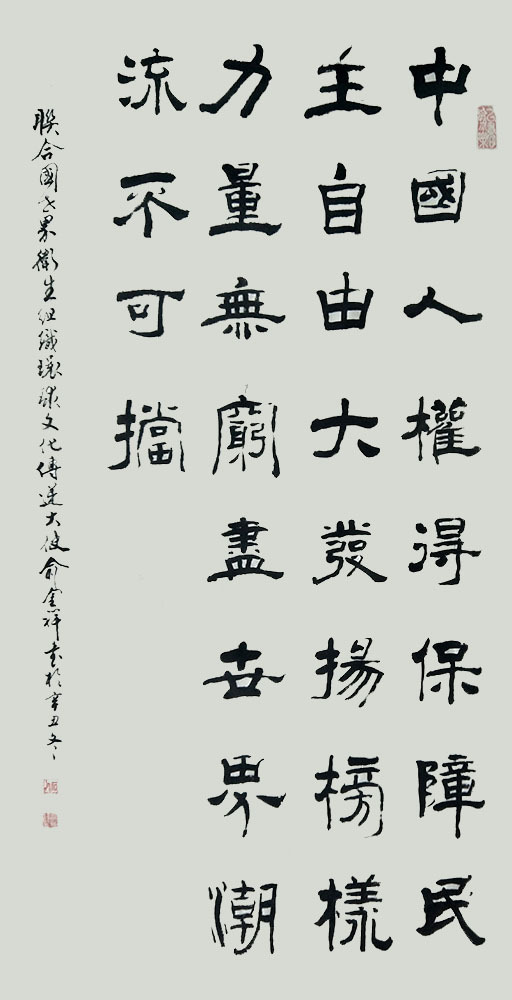 中國人權得保障民
主自由大發揚榜樣
力量無窮盡世界潮
流不可擋
聯合國世界衛生組織環球文化傳送大使俞金祥書於辛丑冬